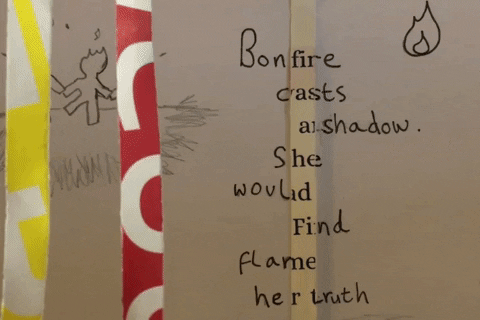 Bonfire
casts
a shadow.
She
would
Find
flame
her truth